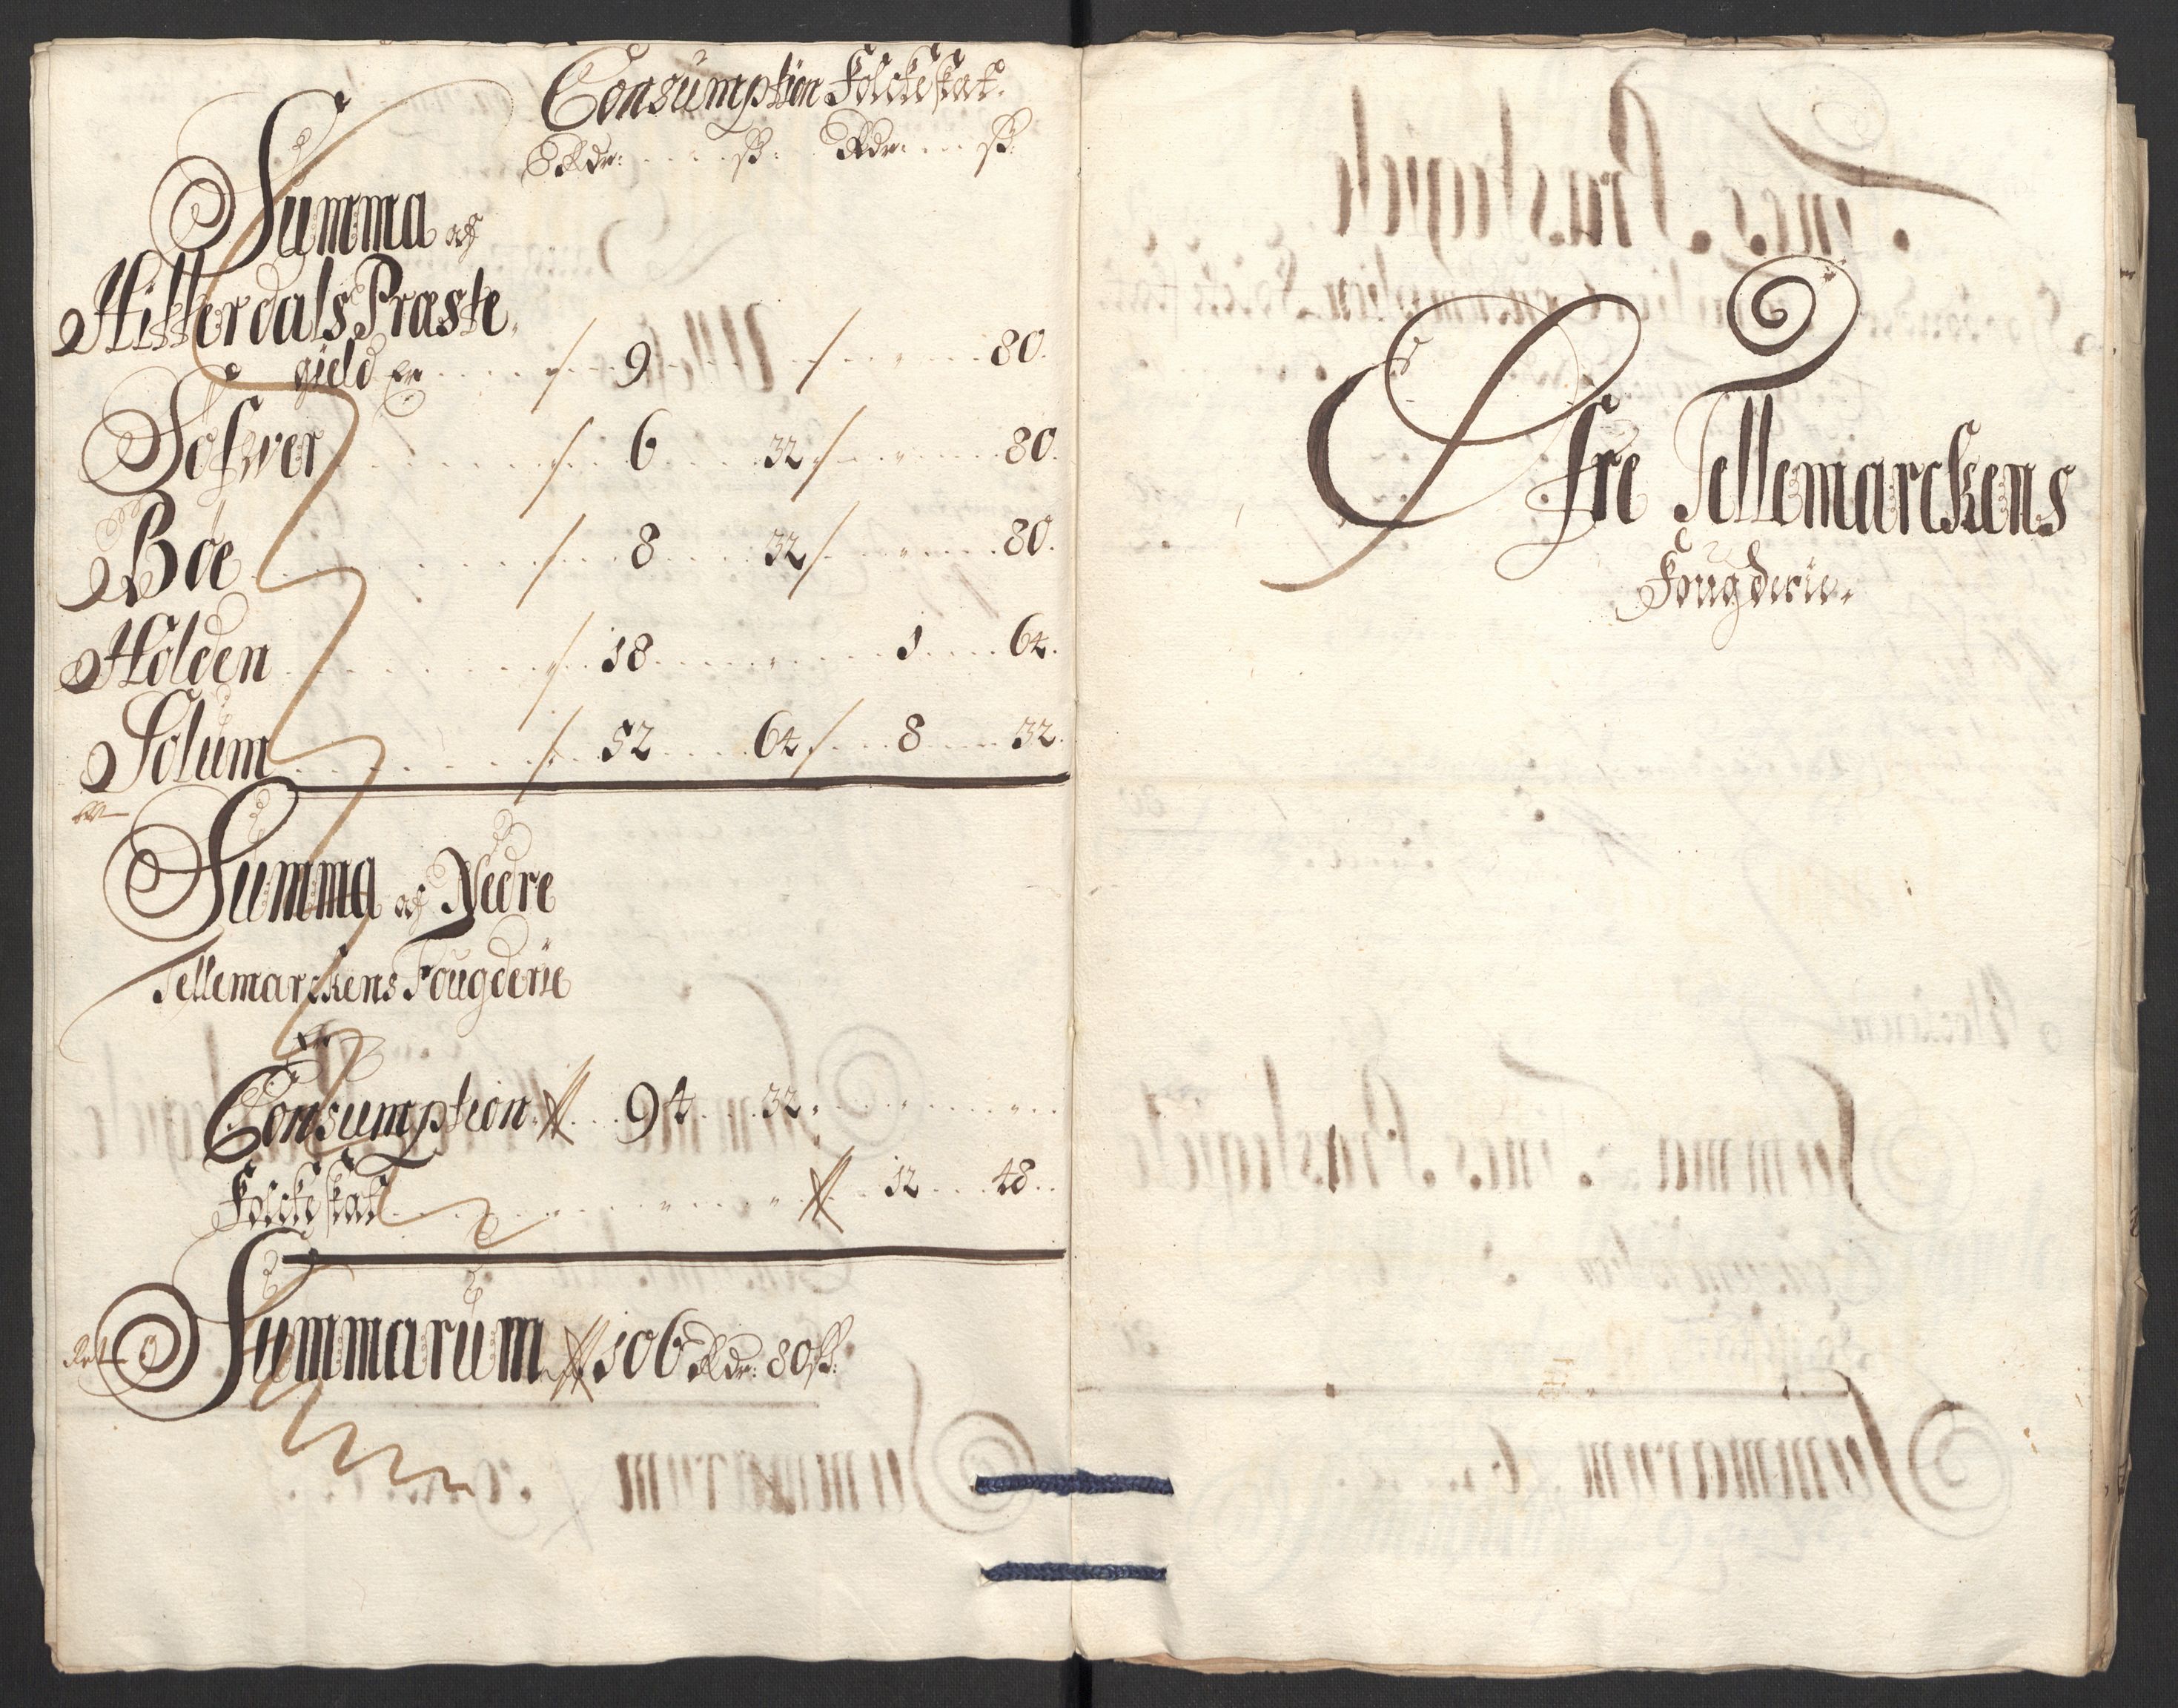 Consumption Folckeskat.
Rdr: ß: Rdr: ß:
Summa af
Hitterdals Præste-
gield Er 9 80.
Sofwer 6 32 80.
Böe 8 32 80.
Holden 18 1 64.
Solum 52 64 8 32.
Summa af Nedre
Tellemarckens Fougderie
Er
Consumption 94 32
Folckeskat 12 48
Summarum 106 Rdr: 80 ß:
Öfre Tellemarckens
Fougderie.